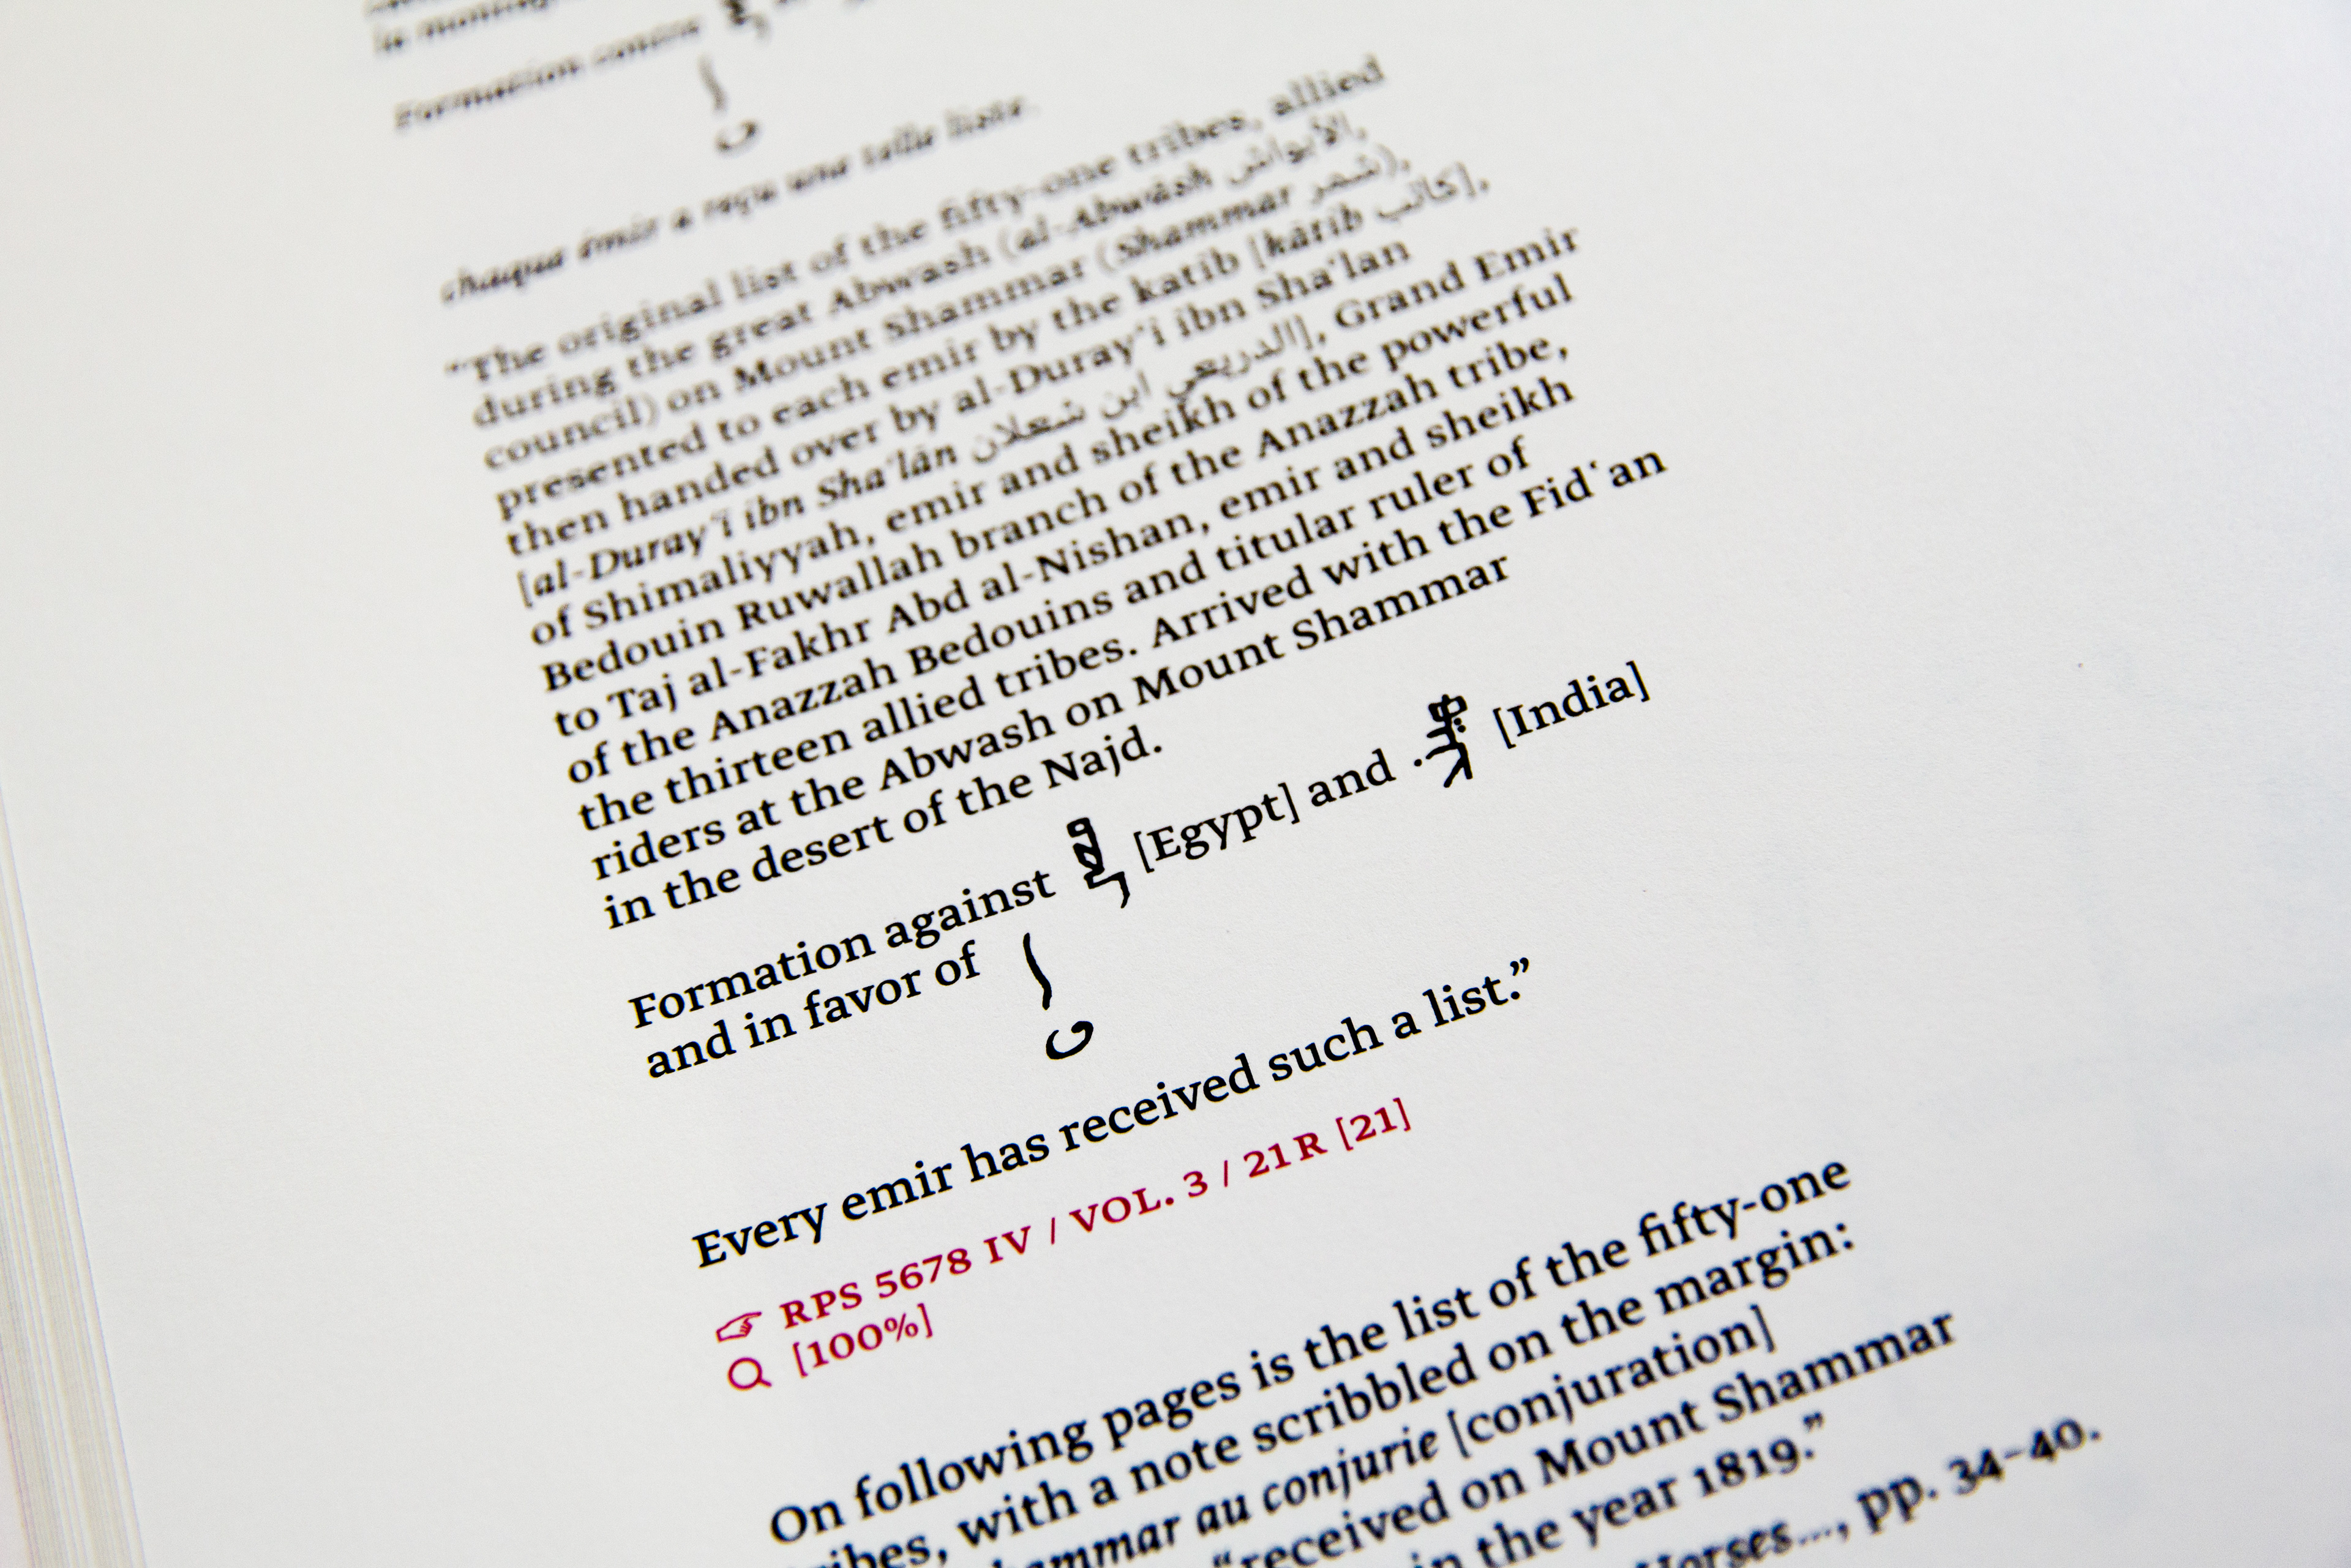 la
Formation contre
chaque émir a reçu une telle liste.
“The original list of the fifty-one tribes, allied
during the great Abwash (al-Abwāsh الأبواش,
council) on Mount Shammar (Shammar شمر),
presented to each emir by the katib [kātib كاتب],
then handed over by al-Duray‘i ibn Sha‘lan
[al-Duray‘ī ibn Sha‘lān الدريعي ابن شعلان], Grand Emir
of Shimaliyyah, emir and sheikh of the powerful
Bedouin Ruwallah branch of the Anazzah tribe,
to Taj al-Fakhr Abd al-Nishan, emir and sheikh
of the Anazzah Bedouins and titular ruler of
the thirteen allied tribes. Arrived with the Fid‘an
riders at the Abwash on Mount Shammar
in the desert of the Najd.
Formation against [Egypt] and [India]
and in favor of
Every emir has received such a list.”
☞ RPS 5678 IV / VOL. 3 / 21R [21]
[100%]
On following pages is the list of the fifty-one
tribes, with a note scribbled on the margin:
au conjurie [conjuration]
“received on Mount Shammar
in the year 1819.”
Horses..., pp. 34–40.